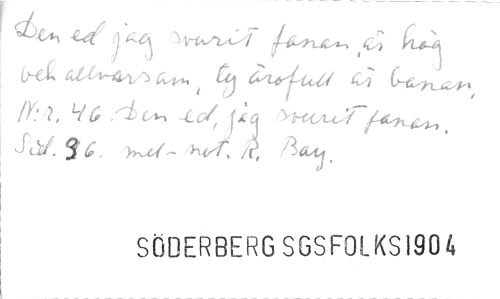 Den ed jag svurit fanan, är hög
och allvarsam, ty ärofull är banan,
N:r. 46. Den ed, jag svurit fanan.
Sid. 36. mel-not. R. Bay.
SÖDERBERG SGSFOLKS1904